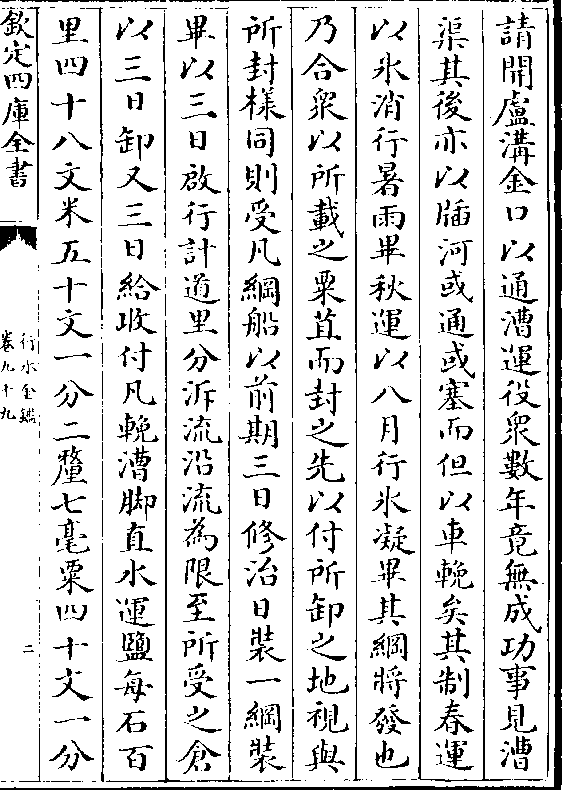 請開盧溝金口以通漕運役衆數年竟無成功事見漕
渠其後亦以牐河或通或塞而但以車輓矣其制春運
以氷消行暑雨畢秋運以八月行氷凝畢其綱將發也
乃合衆以所載之粟苴而封之先以付所卸之地視與
所封様同則受凡綱船以前期三日修治日裝一綱裝
畢以三日啟行計道里分泝流沿流為限至所受之倉
以三日卸又三日給收付凡輓漕脚直水運鹽每石百
里四十八文米五十文一分二釐七毫粟四十文一分
欽定四庫全書
行水金鑑
卷九十九
二